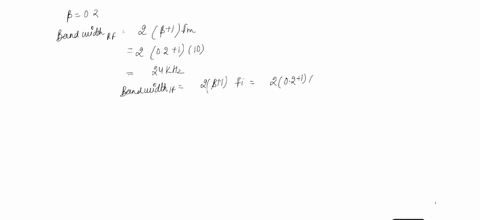 β = 0.2
Bandwidth RF = 2 (β+1) fm
= 2 (0.2+1) (10)
= 24 KHz
Bandwidth IF = 2(β+1) fi = 2(0.2+1) (